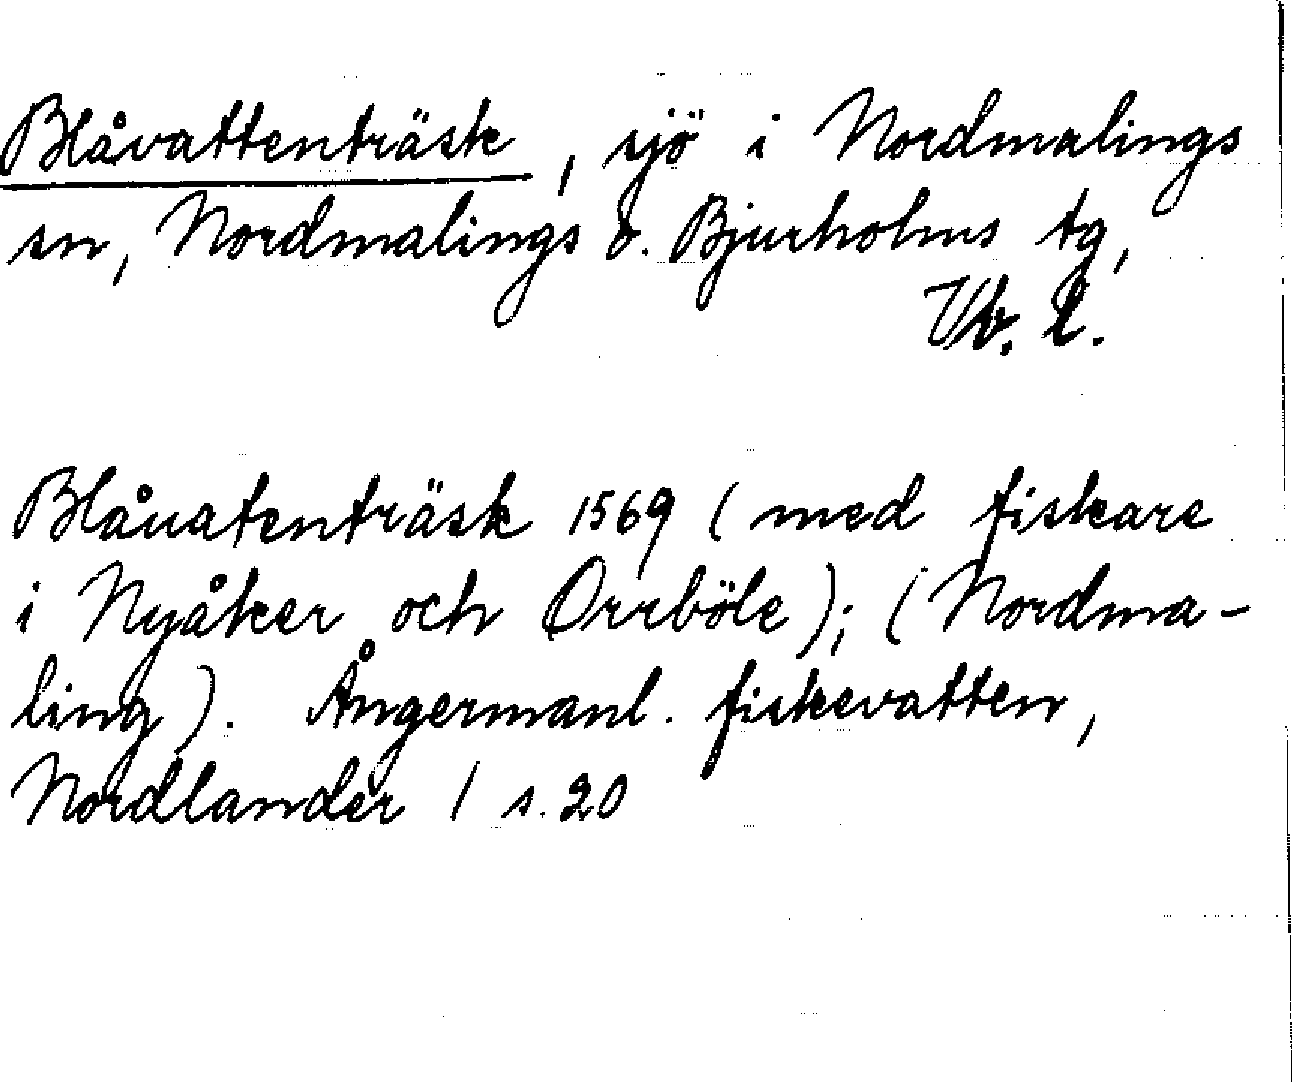 Blåvattenträsk, sjö i Nordmalings
sn, Nordmalings o. Bjurholms tg,
Vb. l.
Blåuatenträsk 1569 (med fiskare
i Nyåker och Orrböle); (Nordma-
ling). Ångermanl. fiskevatten,
Nordlander 1 s. 20